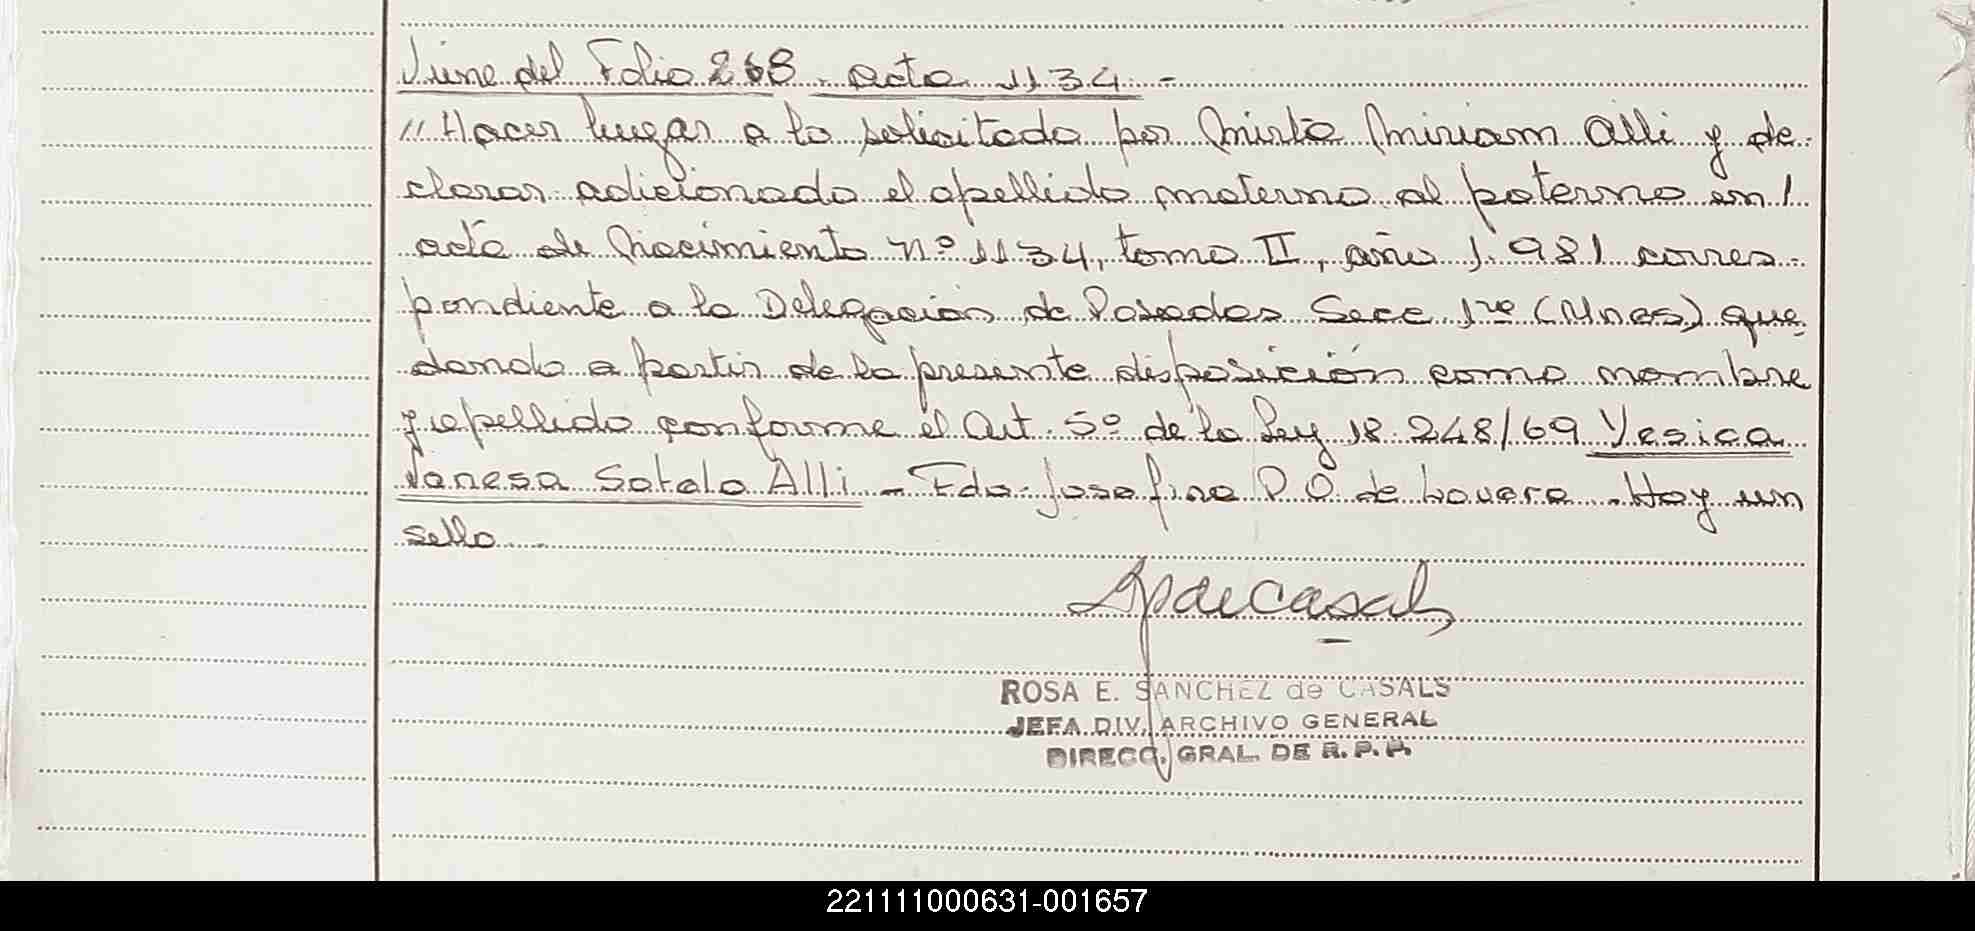 Viene del Folio 268. acta 1134.-
"Hacer lugar a lo solicitado por Mirta Miriam Alli y de-
clarar adicionado el apellido materno al paterno en l
acta de Nacimiento nº 1134, tomo II, año 1.981 corres-
pondiente a la Delegación de Posadas Secc 1ra (Mnes) que-
dando a partir de la presente disposición como nombre
y apellido conforme el Art. 5º de la Ley 18.248/69 Yesica
Vanesa Sotelo Alli - Fdo. Josefina D. O. de Lovera. Hay un
sello.
ROSA E. SANCHEZ de CASALS
JEFA DIV. ARCHIVO GENERAL
DIRECC. GRAL. DE R. P. P.
221111000631-001657